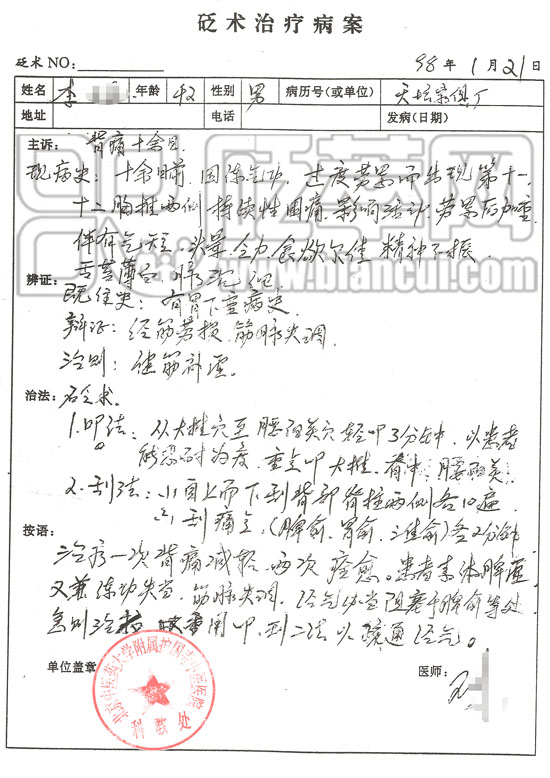 砭术治疗病案
砭术NO: 98年1月21日
姓名 李 年龄 42 性别 男 病历号(或单位) 天坛家俱厂
地址 电话 发病(日期)
主诉: 背痛十余日.
现病史: 十余日前,因练气功,过度劳累而出现第十一、
十二胸椎两侧持续性困痛.影响活动,劳累后加重,
伴有气短、头晕、乏力、食欲欠佳、精神不振.
舌苔薄白、脉沉细.
辨证: 既往史: 有胃下垂病史.
辨证: 经筋劳损,筋脉失调.
治则: 健筋补虚.
治法: 砭术.
1.叩法: 从大椎穴至腰阳关穴轻叩3分钟,以患者
能忍耐为度,重点叩大椎、脊中、腰阳关.
2.刮法: (1)自上而下刮背部脊柱两侧各10遍
(2)刮痛点(脾俞、胃俞、三焦俞)各2分钟
按语:
治疗一次背痛减轻,两次痊愈。患者素体脾虚
又兼练功失当,筋脉失调,经气功当阻塞于脾俞等处
急则治标 故采用叩、刮二法以疏通经气。
单位盖章 医师:
北京中医药大学附属护国寺中医医院
科教处
中医砭萃网
www.biancui.com